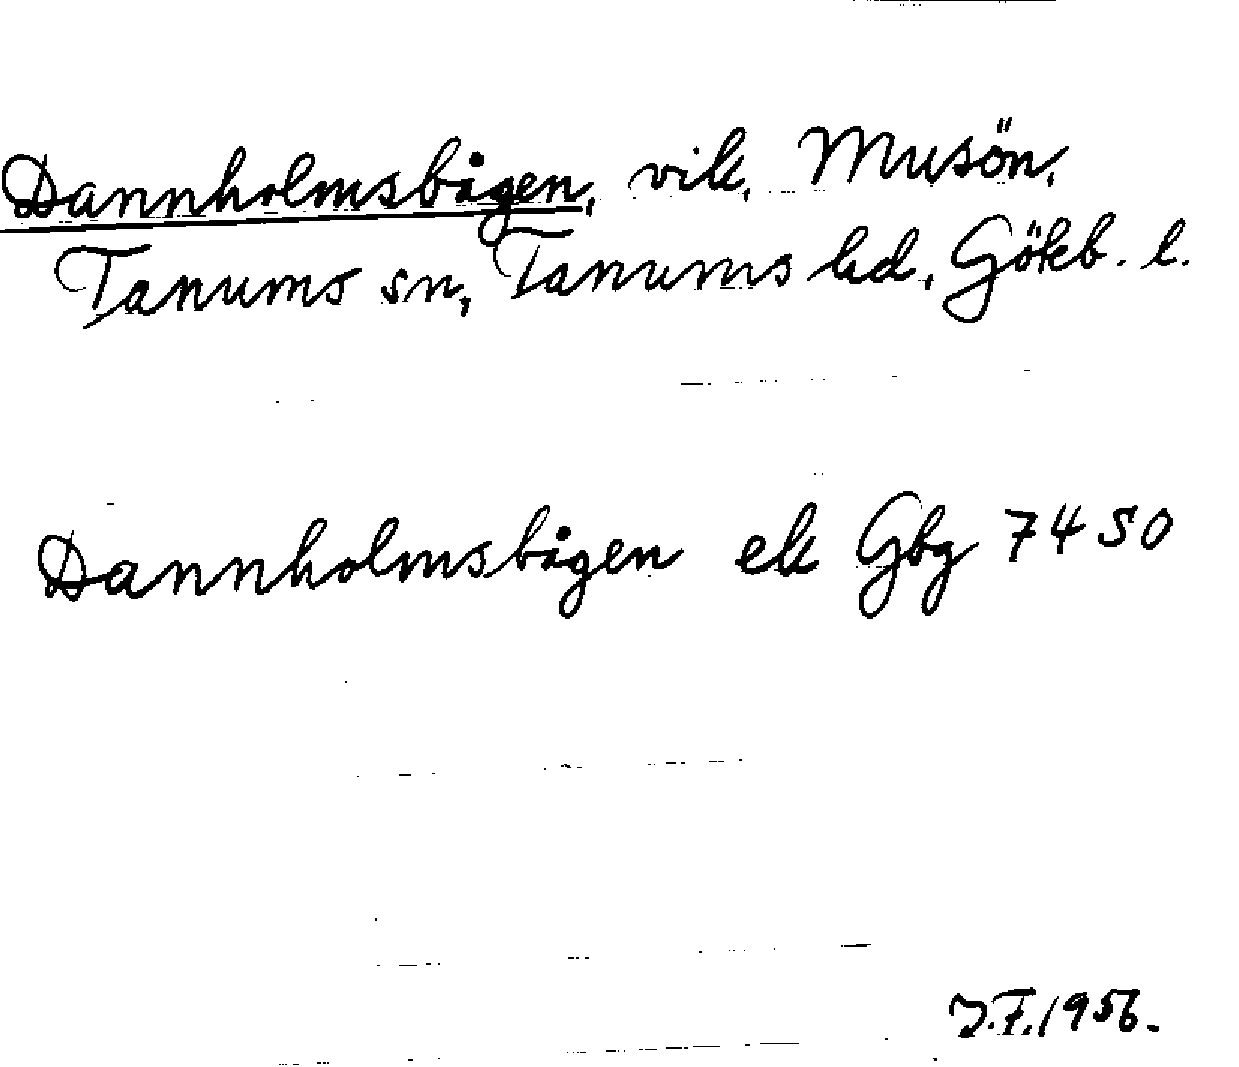 Dannholmsbågen, vik, Musön,
Tanums sn, Tanums hd, Göteb. l.
Dannholmsbågen ek Gbg 7450
J.F. 1956.